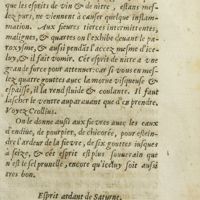 que les esprits de vin & de nitre, estans mes-
lez purs, ne viennent à causer quelque inflam-
mation. Aux fieures tierces intermittentes,
malignes, & quartes on l'exhibe deuant le pa-
roxysme, & aussi pendāt l'accez mesme d'ice-
luy, & il fait vomir. Ces esprit de nitre a vne
grande force pour attenuer: car si vous en mes-
lez quatre gouttes auec la morue visqueuse &
espaisse, il la rend fluide & coulante. Il faut
lascher le ventre auparauant que d'en prendre,
Voyez Crollius.
On le donne aussi aux fieures auec les eaux
d'endiue, de pourpier, de chicorée, pour estein-
dre l'ardeur de la fieure, de six gouttes iusques
à seize, & cet esprit est plus souuerain que
n'est le sel prunelle, encore qu'iceluy soit aussi
tres bon.
Esprit ardant de Saturne.